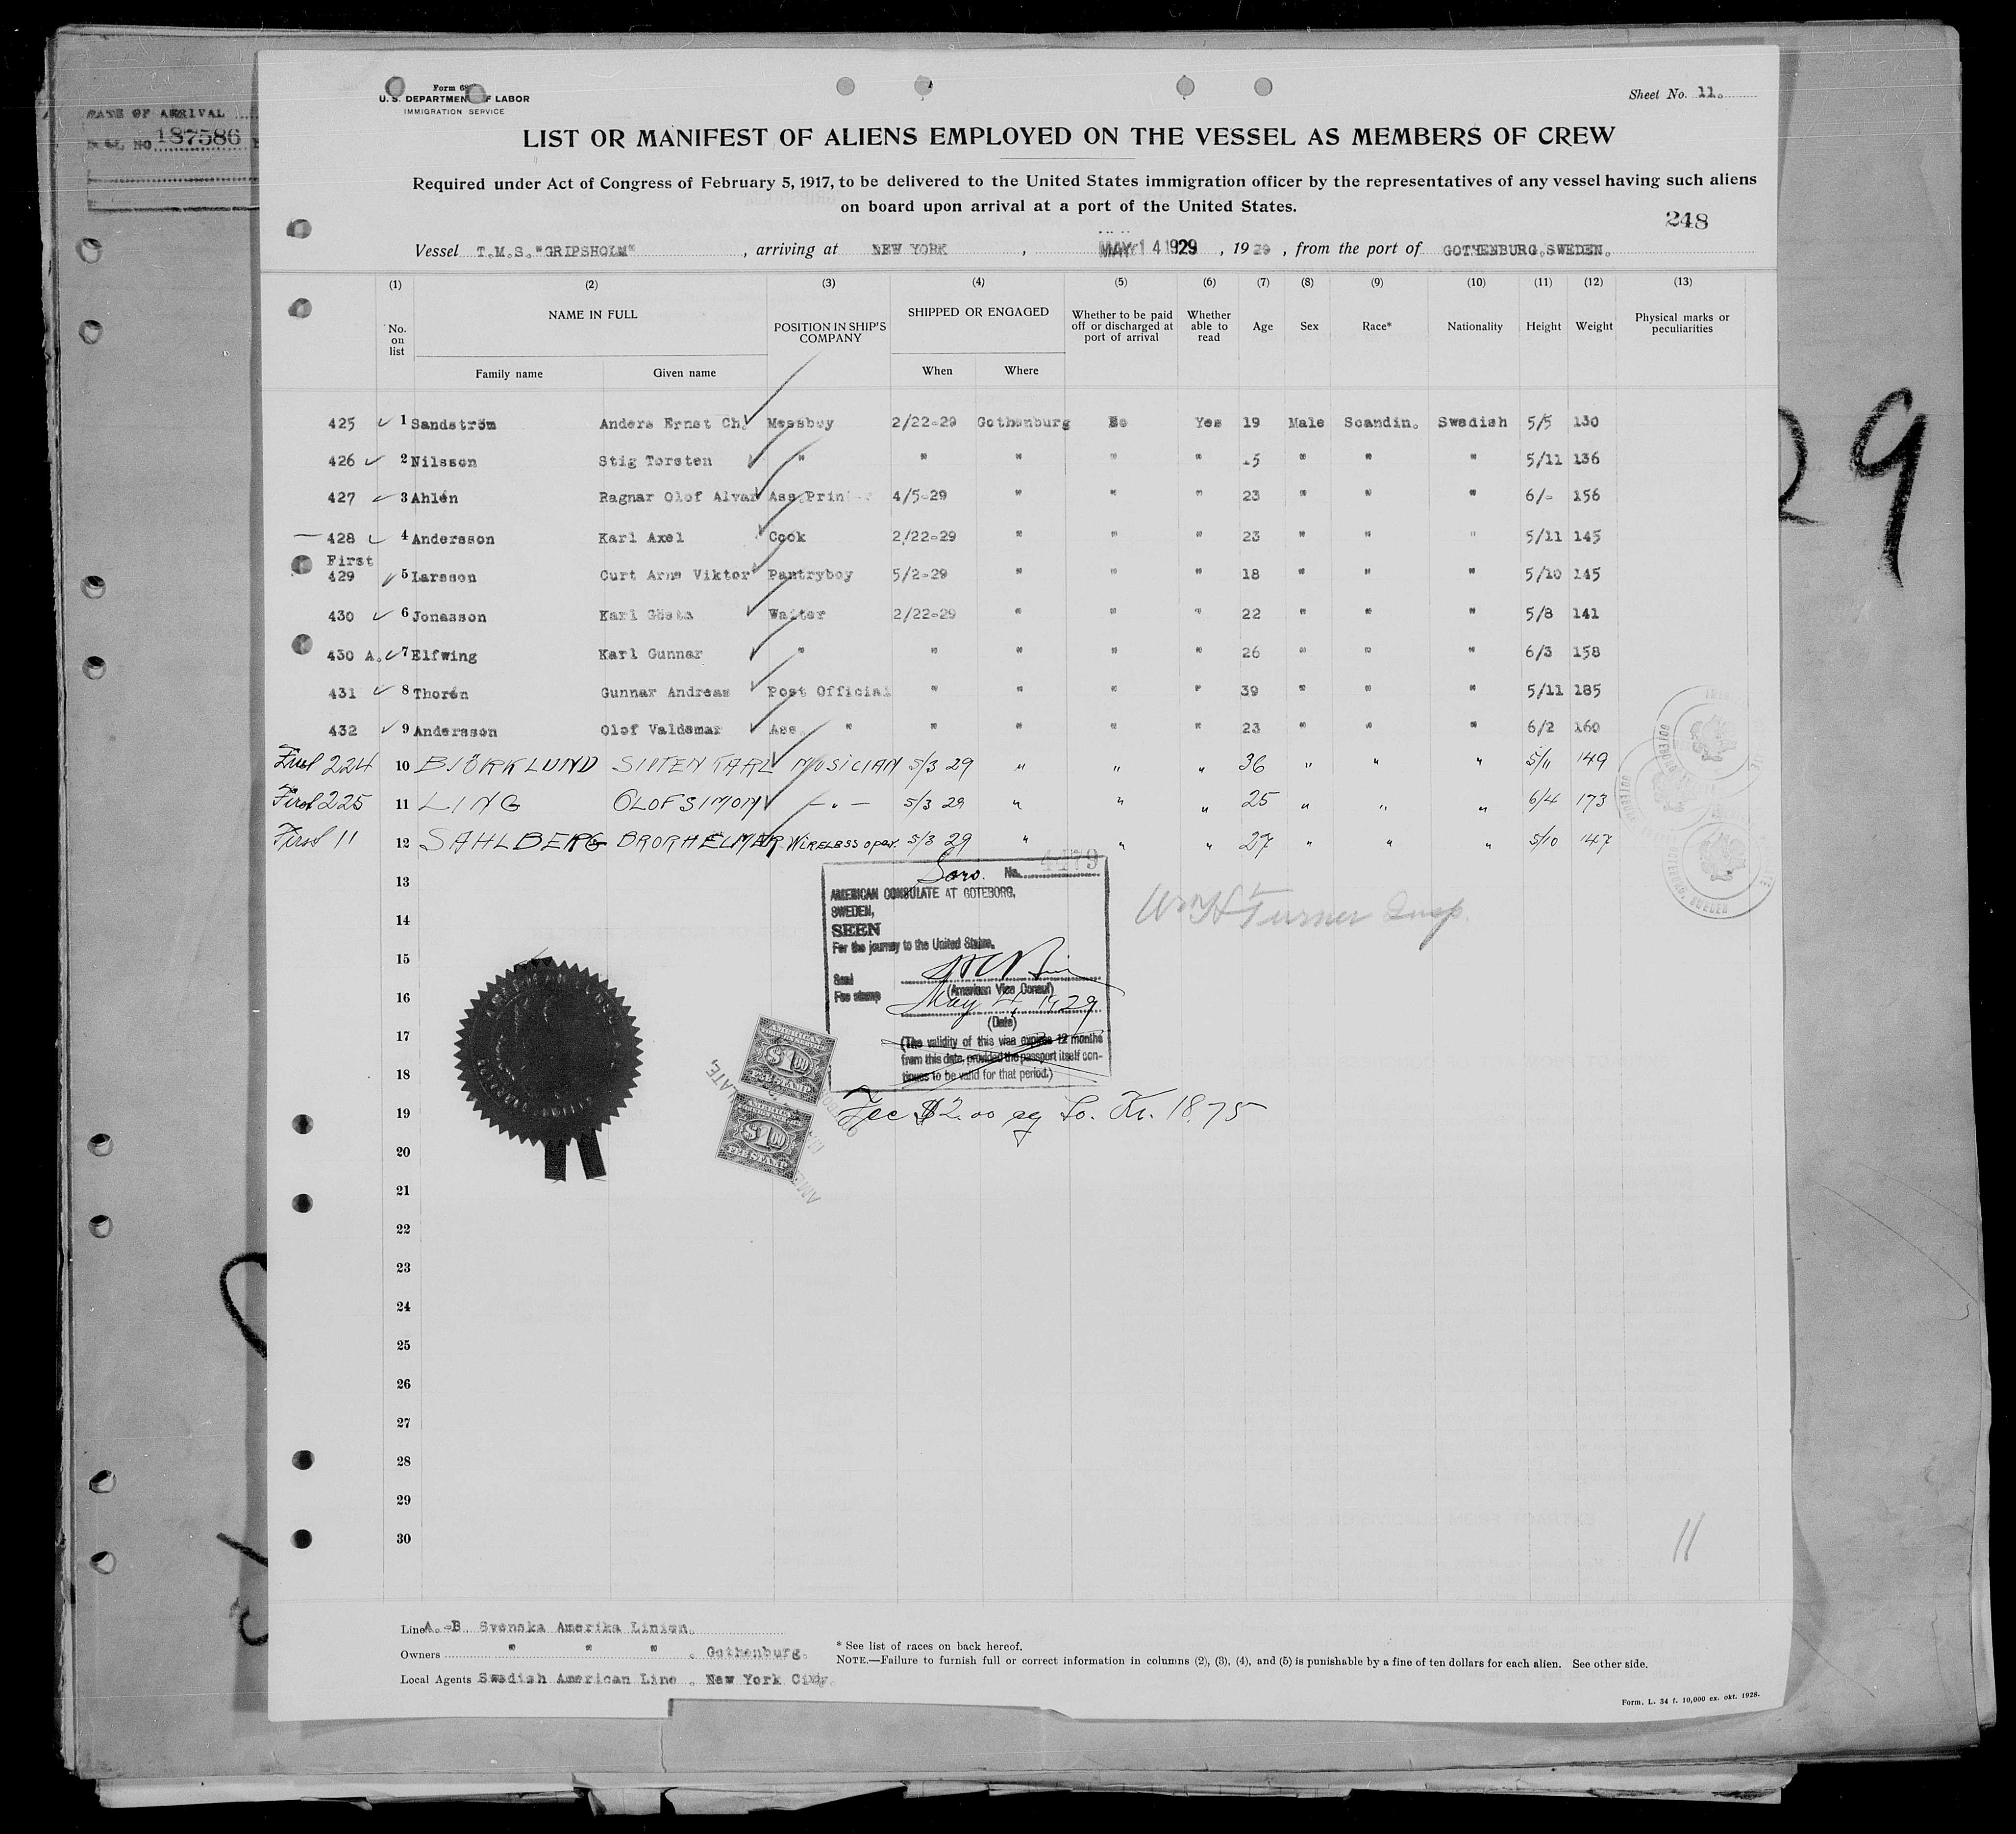 DATE OF ARRIVAL
187586
Form 68
U. S. DEPARTMENT OF LABOR
IMMIGRATION SERVICE
Sheet No. 11.
LIST OR MANIFEST OF ALIENS EMPLOYED ON THE VESSEL AS MEMBERS OF CREW
Required under Act of Congress of February 5, 1917, to be delivered to the United States immigration officer by the representatives of any vessel having such aliens
on board upon arrival at a port of the United States.
248
Vessel T.M.S."GRIPSHOLM" , arriving at NEW YORK , MAY 14 1929 , 19 29 , from the port of GOTHENBURG.SWEDEN.
(1) (2) (3) (4) (5) (6) (7) (8) (9) (10) (11) (12) (13)
No. on list NAME IN FULL Family name Given name POSITION IN SHIP'S COMPANY SHIPPED OR ENGAGED When Where Whether to be paid off or discharged at port of arrival Whether able to read Age Sex Race* Nationality Height Weight Physical marks or peculiarities
425 1 Sandström Anders Ernst Ch. Messboy 2/22-29 Gothenburg No Yes 19 Male Scandin. Swedish 5/5 130
426 2 Nilsson Stig Torsten " " " " " 15 " " " 5/11 136
427 3 Ahlén Ragnar Olof Alvar Ass.Printer 4/5-29 " " " 23 " " " 6/- 156
428 4 Andersson Karl Axel Cook 2/22-29 " " " 23 " " " 5/11 145
First
429 5 Larsson Curt Arne Viktor Pantryboy 5/2-29 " " " 18 " " " 5/10 145
430 6 Jonasson Karl Gösta Waiter 2/22-29 " " " 22 " " " 5/8 141
430 A. 7 Elfwing Karl Gunnar " " " " " 26 " " " 6/3 158
431 8 Thorén Gunnar Andreas Post Official " " " " 39 " " " 5/11 185
432 9 Andersson Olof Valdemar Ass. " " " " " 23 " " " 6/2 160
First 224 10 BJÖRKLUND SIXTEN KARL MUSICIAN 5/3 29 " " " 36 " " " 5/11 149
First 225 11 LING OLOF SIMON - " - 5/3 29 " " " 25 " " " 6/4 173
First 11 12 SAHLBERG BROR HELMER WIRELESS oper. 5/3 29 " " " 27 " " " 5/10 147
13
14
15
16
17
18
19
20
21
22
23
24
25
26
27
28
29
30
No. 4479
AMERICAN CONSULATE AT GOTEBORG,
SWEDEN,
SEEN
For the journey to the United States.
Seal
Fee stamp
(American Vice Consul)
May 4, 1929
(Date)
(The validity of this visa expires 12 months
from this date, provided the passport itself con-
tinues to be valid for that period.)
Wm H Turner Insp.
AMERICAN
$1.00
FEE STAMP
AMERICAN
$1.00
FEE STAMP
Fee $2.00 eq to. Kr. 18.75
11
29
Line A.-B. Svenska Amerika Linien.
Owners " " " . Gothenburg.
Local Agents Swedish American Line . New York City.
* See list of races on back hereof.
NOTE.—Failure to furnish full or correct information in columns (2), (3), (4), and (5) is punishable by a fine of ten dollars for each alien. See other side.
Form. L. 34 f. 10,000 ex. okt. 1928.